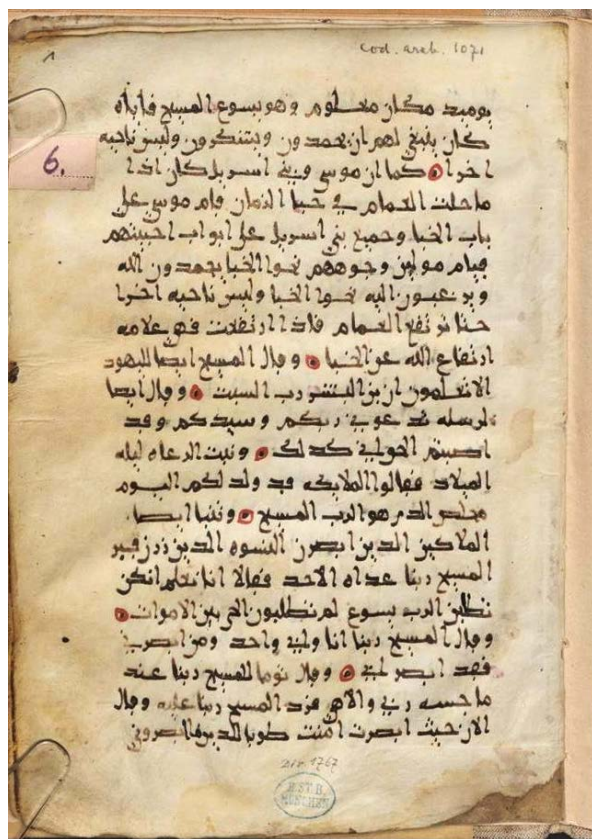 Cod. arab. 1071
1
6.
يوميذ مكان معلوم وهو يسوع المسيح فاياه
كان ينبغي لهم ان يحمدون ويتشكرون وليس ناحيه
اخرا كما ان موسي وبني اسريل كان اذا
ما حلت الغمام في خبا الزمان قام موسي علي
باب الخبا وجميع بني اسريل علي ابواب اخبيتهم
قيام مولين وجوههم نحوا الخبا يحمدون الله
ويرغبون اليه نحوا الخبا وليس ناحيه اخرا
حتا ترتفع الغمام فاذا ارتفعت فهي علامه
ارتفاع الله عن الخبا وقال المسيح ايضا لليهود
الا تعلمون ان بن البشر رب السبت وقال ايضا
لرسله تدعوني ربكم وسيدكم وقد
اصبتم القول اني كذلك وثبت الرعاه ليله
الميلاد فقالوا الملايكه قد ولد لكم اليوم
مخلص الذي هو الرب المسيح وثنيا ايضا
الملاكين الذين ابصرن النسوه الذين زرن قبر
المسيح ربنا غداه الاحد فقالا انا نعلم انكن
تطلبن الرب يسوع لم تطلبون الحي بين الاموات
وقال المسيح ربنا انا وابي واحد ومن ابصرني
فقد ابصر ابي وقال توما للمسيح ربنا عند
ما حسه ربي والاهي فرد المسيح ربنا عليه وقال
الان حيث ابصرت امنت طوبا للذين ما ابصروني
1767
B.ST.B.
MÜNCHEN